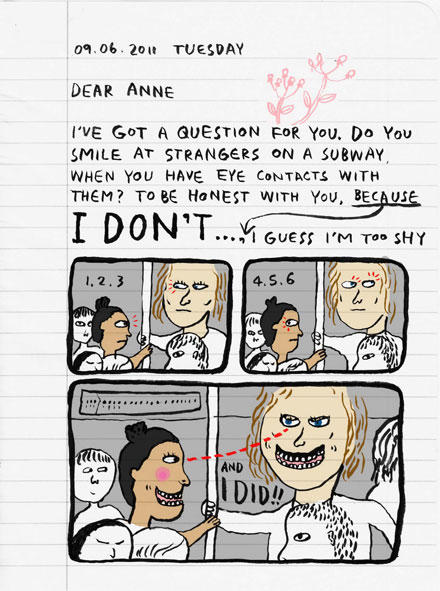 09.06.2011 TUESDAY
DEAR ANNE
I'VE GOT A QUESTION FOR YOU. DO YOU
SMILE AT STRANGERS ON A SUBWAY,
WHEN YOU HAVE EYE CONTACTS WITH
THEM? TO BE HONEST WITH YOU, BECAUSE
I DON'T...., I GUESS I'M TOO SHY
1.2.3
4.5.6
AND
I DID!!